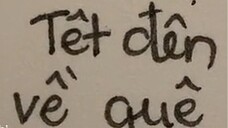 Tết đến
về quê